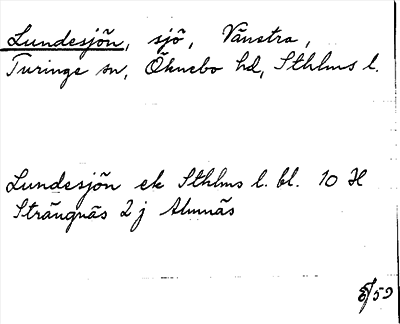 Lundesjön, sjö, Vänstra,
Turinge sn, Öknebo hd, Sthlms l.
Lundesjön ek Sthlms l. bl. 10 H
Strängnäs 2 j Almnäs
59